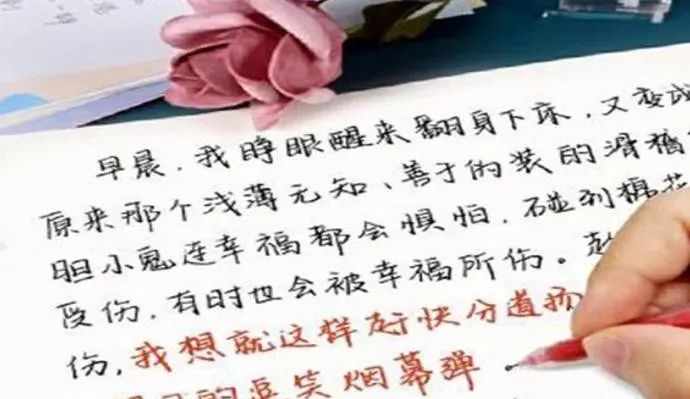 早晨,我睁眼醒来翻身下床,又变成
原来那个浅薄无知、善于的装的滑稽
胆小鬼连幸福都会惧怕,碰到棉花
受伤,有时也会被幸福所伤。趁
伤,我想就这样赶快分道扬
的逗笑烟幕弹